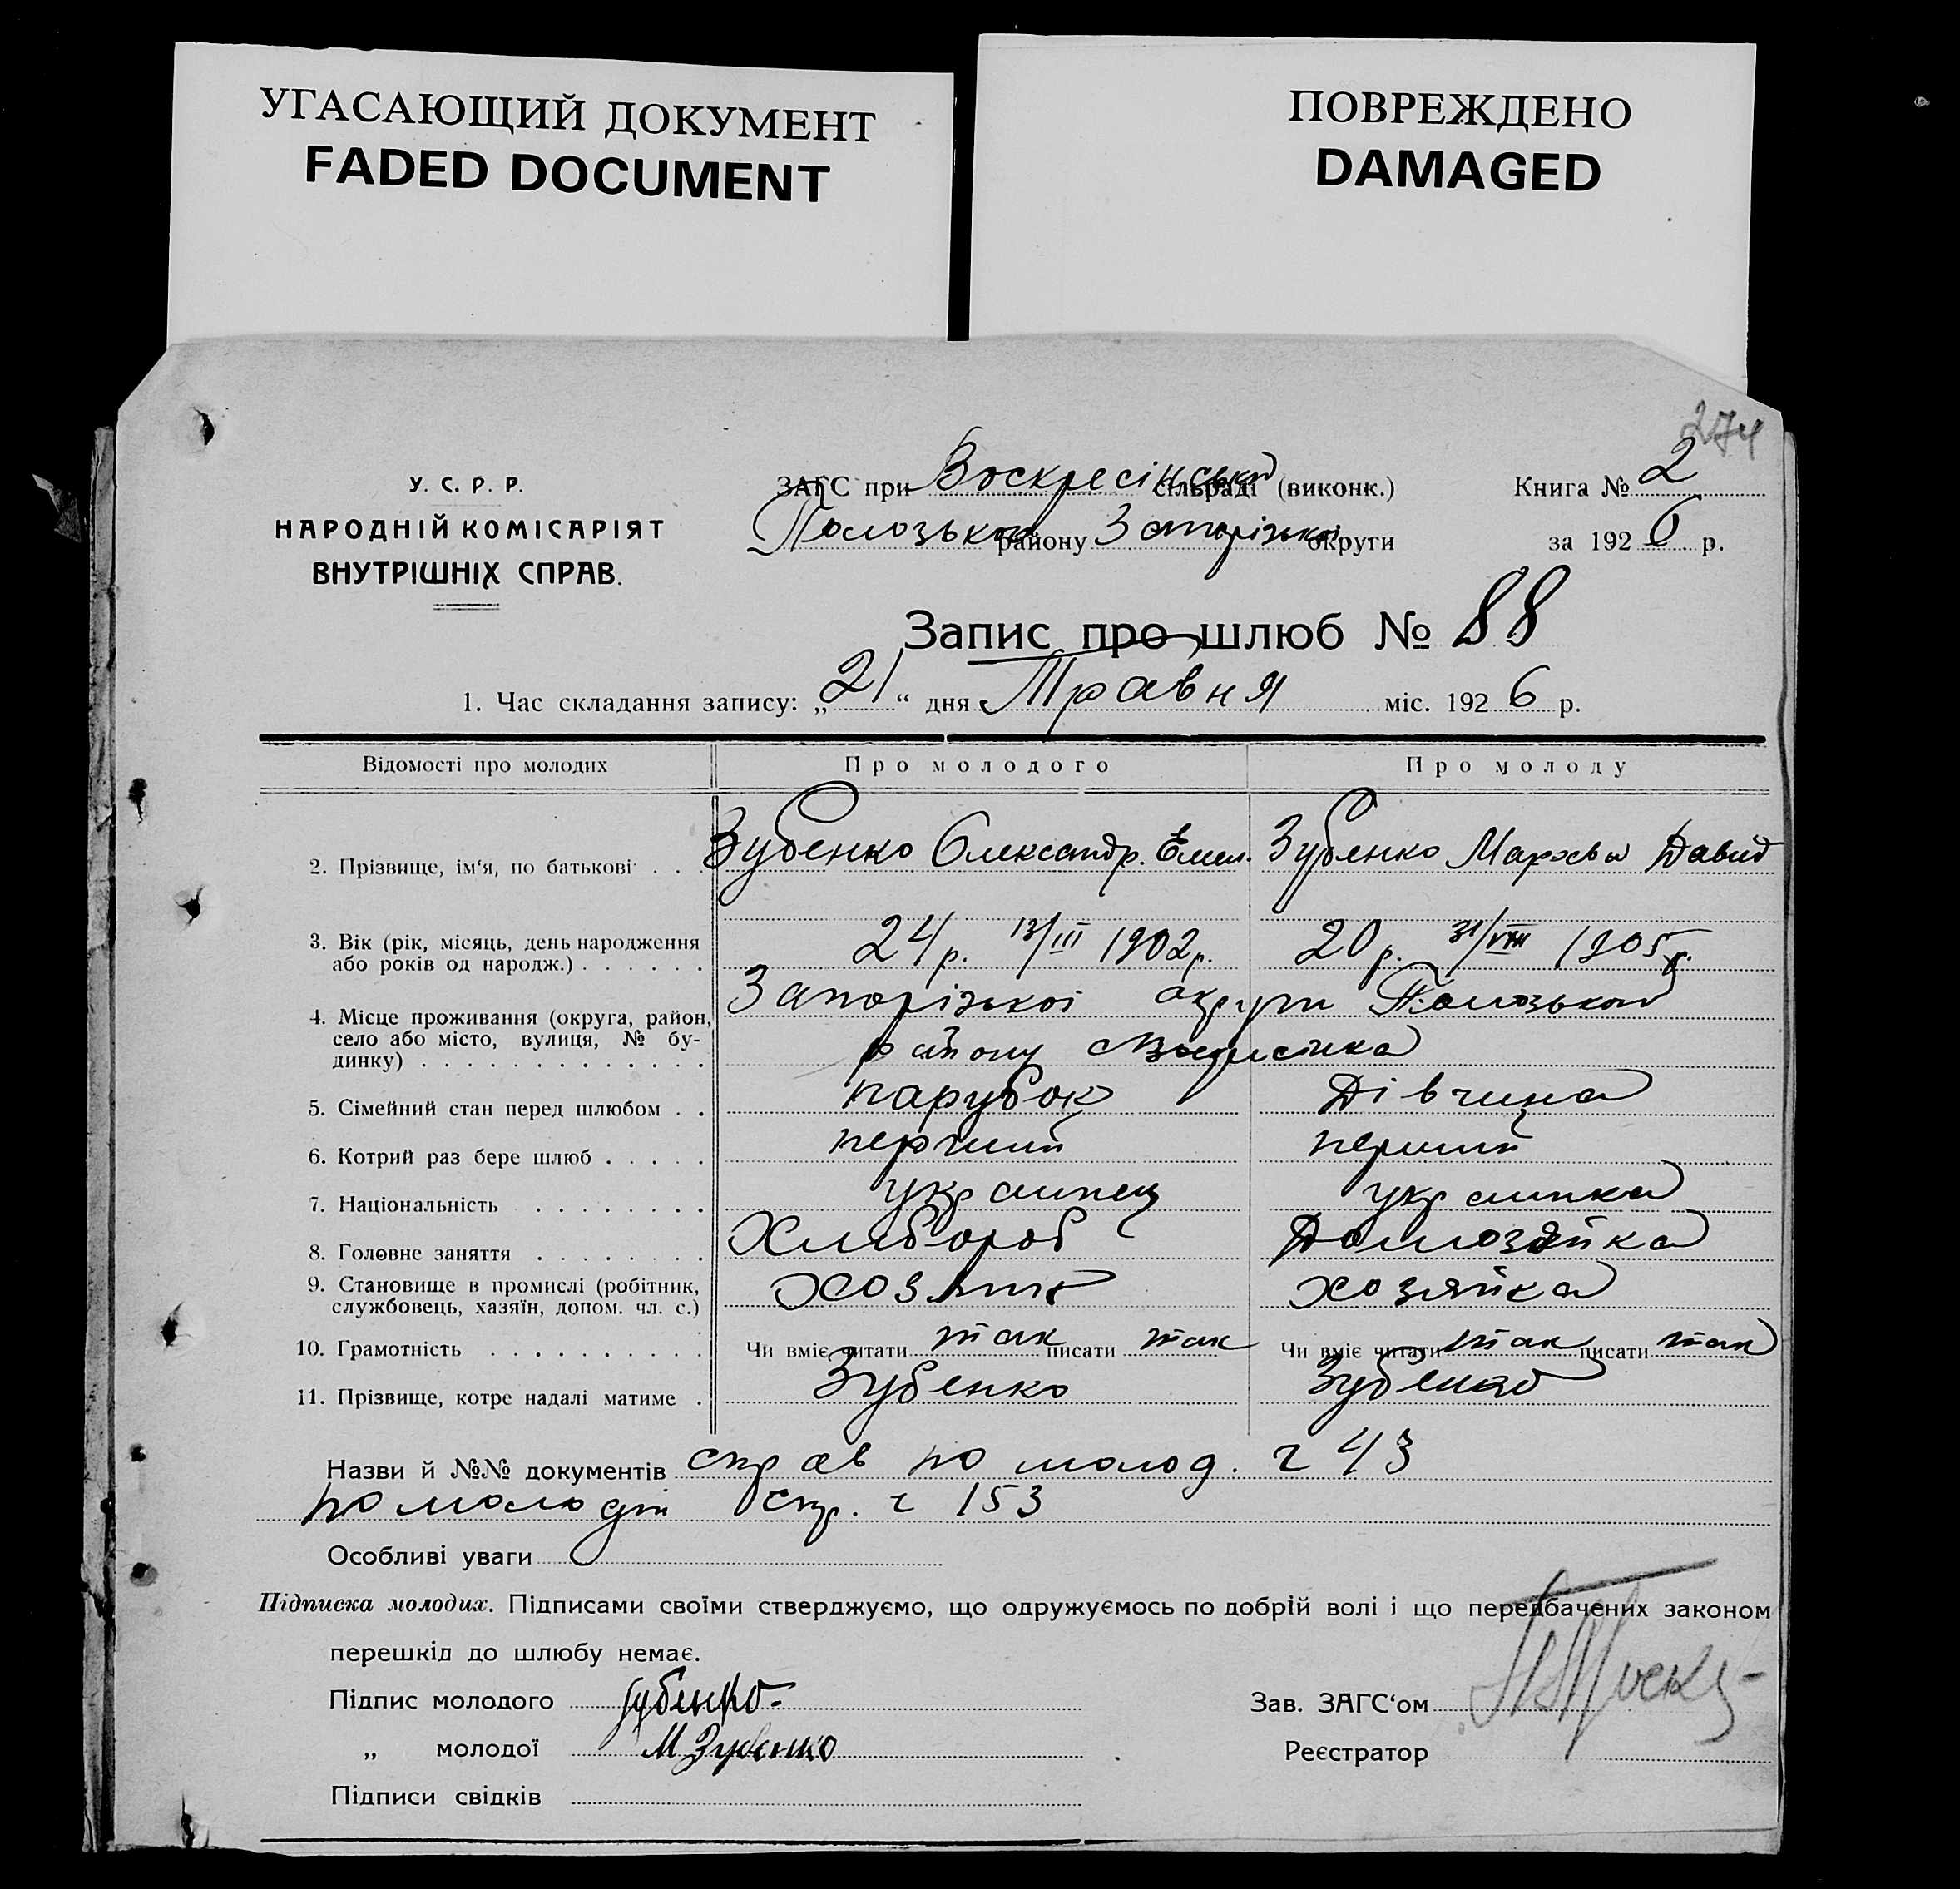 УГАСАЮЩИЙ ДОКУМЕНТ
FADED DOCUMENT
ПОВРЕЖДЕНО
DAMAGED
274
У. С. Р. Р.
НАРОДНІЙ КОМІСАРІЯТ
ВНУТРІШНІХ СПРАВ.
ЗАГС при Воскресінській сільраді (виконк.)
Полозького району Запорізької округи
Книга № 2
за 1926 р.
Запис про шлюб № 88
1. Час складання запису: „21“ дня Травня міс. 1926 р.
Відомості про молодих Про молодого Про молоду
2. Прізвище, ім‘я, по батькові . . . Зубенко Олександр. Емел. Зубенко Давид
3. Вік (рік, місяць, день народження
або років од народж.) . . . . . . 24 р. 13/III 1902 р. 20 р. 31/VIII 1905 р.
4. Місце проживання (округа, район, Запорізької округи Полозького
село або місто, вулиця, № бу-
динку) . . . . . . . . . . . . . району
5. Сімейний стан перед шлюбом . . парубок Дівчина
6. Котрий раз бере шлюб . . . . . перший перший
7. Національність . . . . . . . . українець українка
8. Головне заняття . . . . . . . Хлібороб
9. Становище в промислі (робітник,
службовець, хазяїн, допом. чл. с.) хозяїн хозяйка
10. Грамотність . . . . . . . . . . Чи вміє читати так писати так Чи вміє читати так писати так
11. Прізвище, котре надалі матиме . Зубенко Зубенко
Назви й №№ документів справ по молод. ч 43
по молодій спр. ч 153
Особливі уваги
Підписка молодих. Підписами своїми стверджуємо, що одружуємось по добрій волі і що передбачених законом
перешкід до шлюбу немає.
Підпис молодого Зубенко
„ молодої М Зубенко
Підписи свідків
Зав. ЗАГС‘ом
Реєстратор